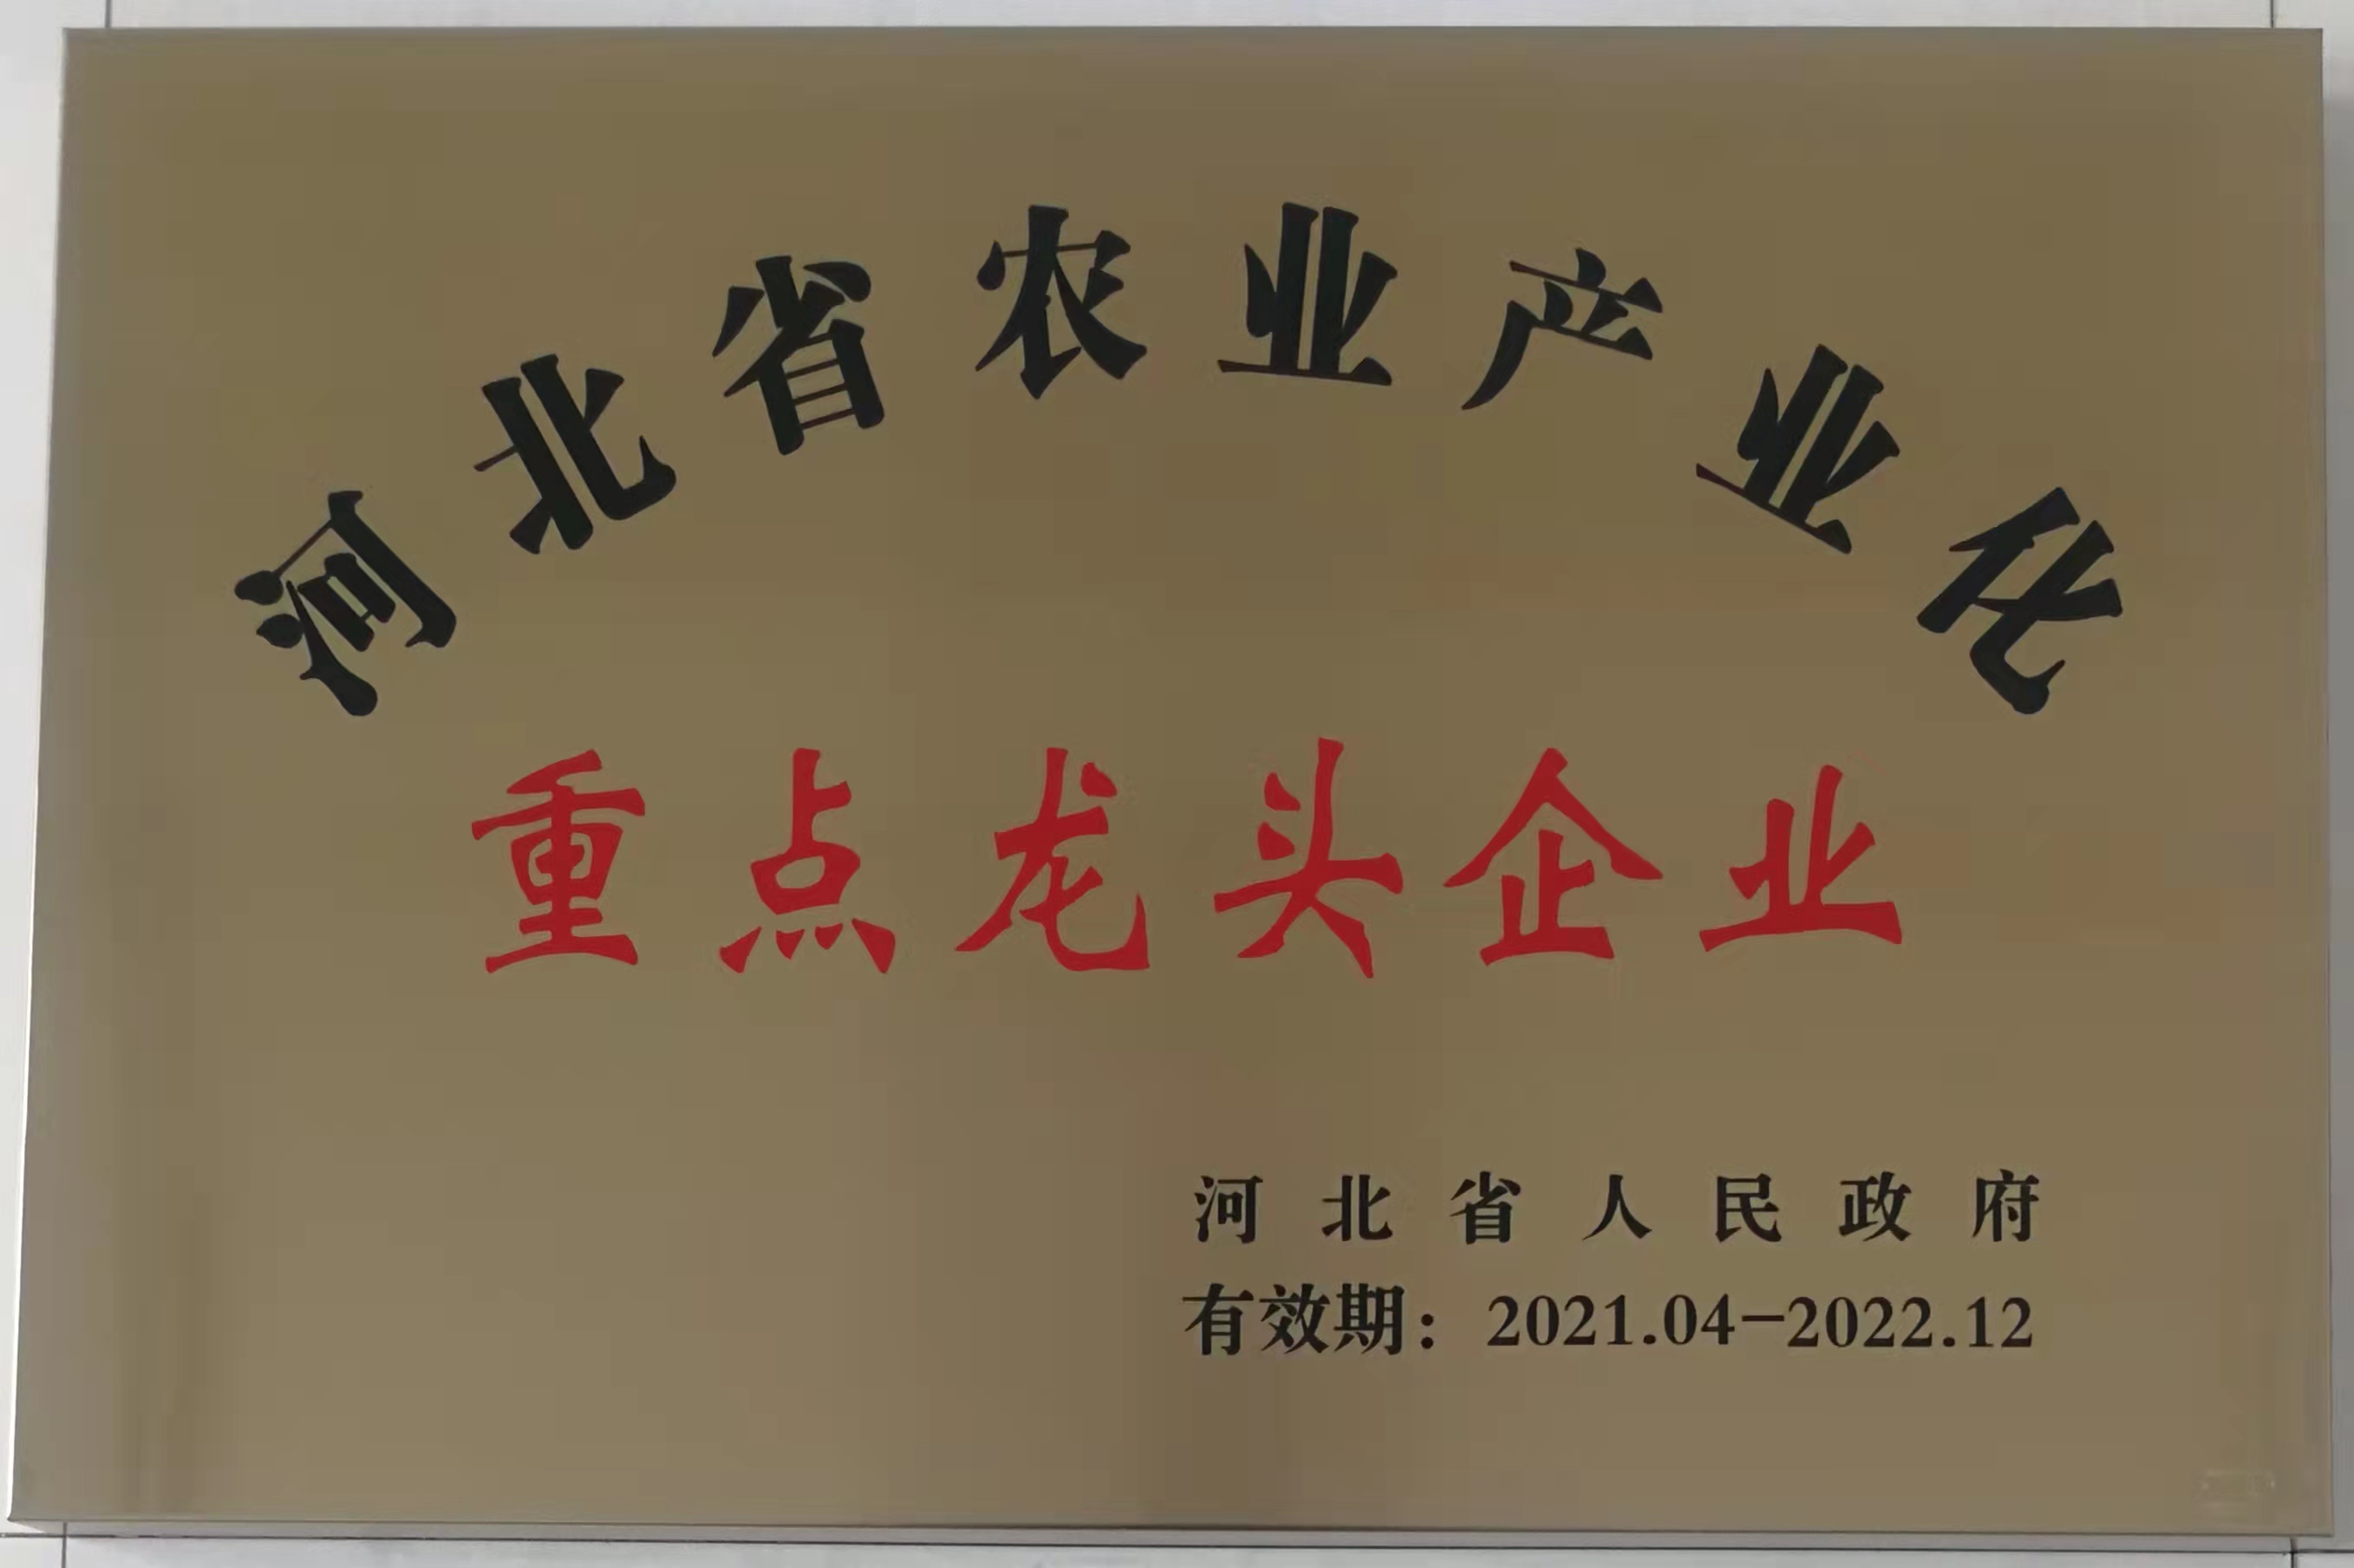 河北省农业产业化
重点龙头企业
河北省人民政府
有效期：2021.04-2022.12